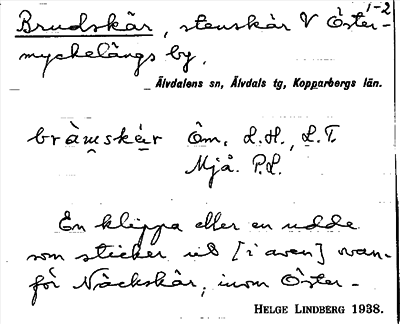 1-2
Brudskär, stenskär V Öster-
myckelängs by,
Älvdalens sn, Älvdals tg, Kopparbergs län.
bràmskär Öm. L.H., L.T.
Mjå. P.L.
En klippa eller en udde
som sticker ut [i aven] ovan-
för Näckskär, inom Öster-
HELGE LINDBERG 1938.